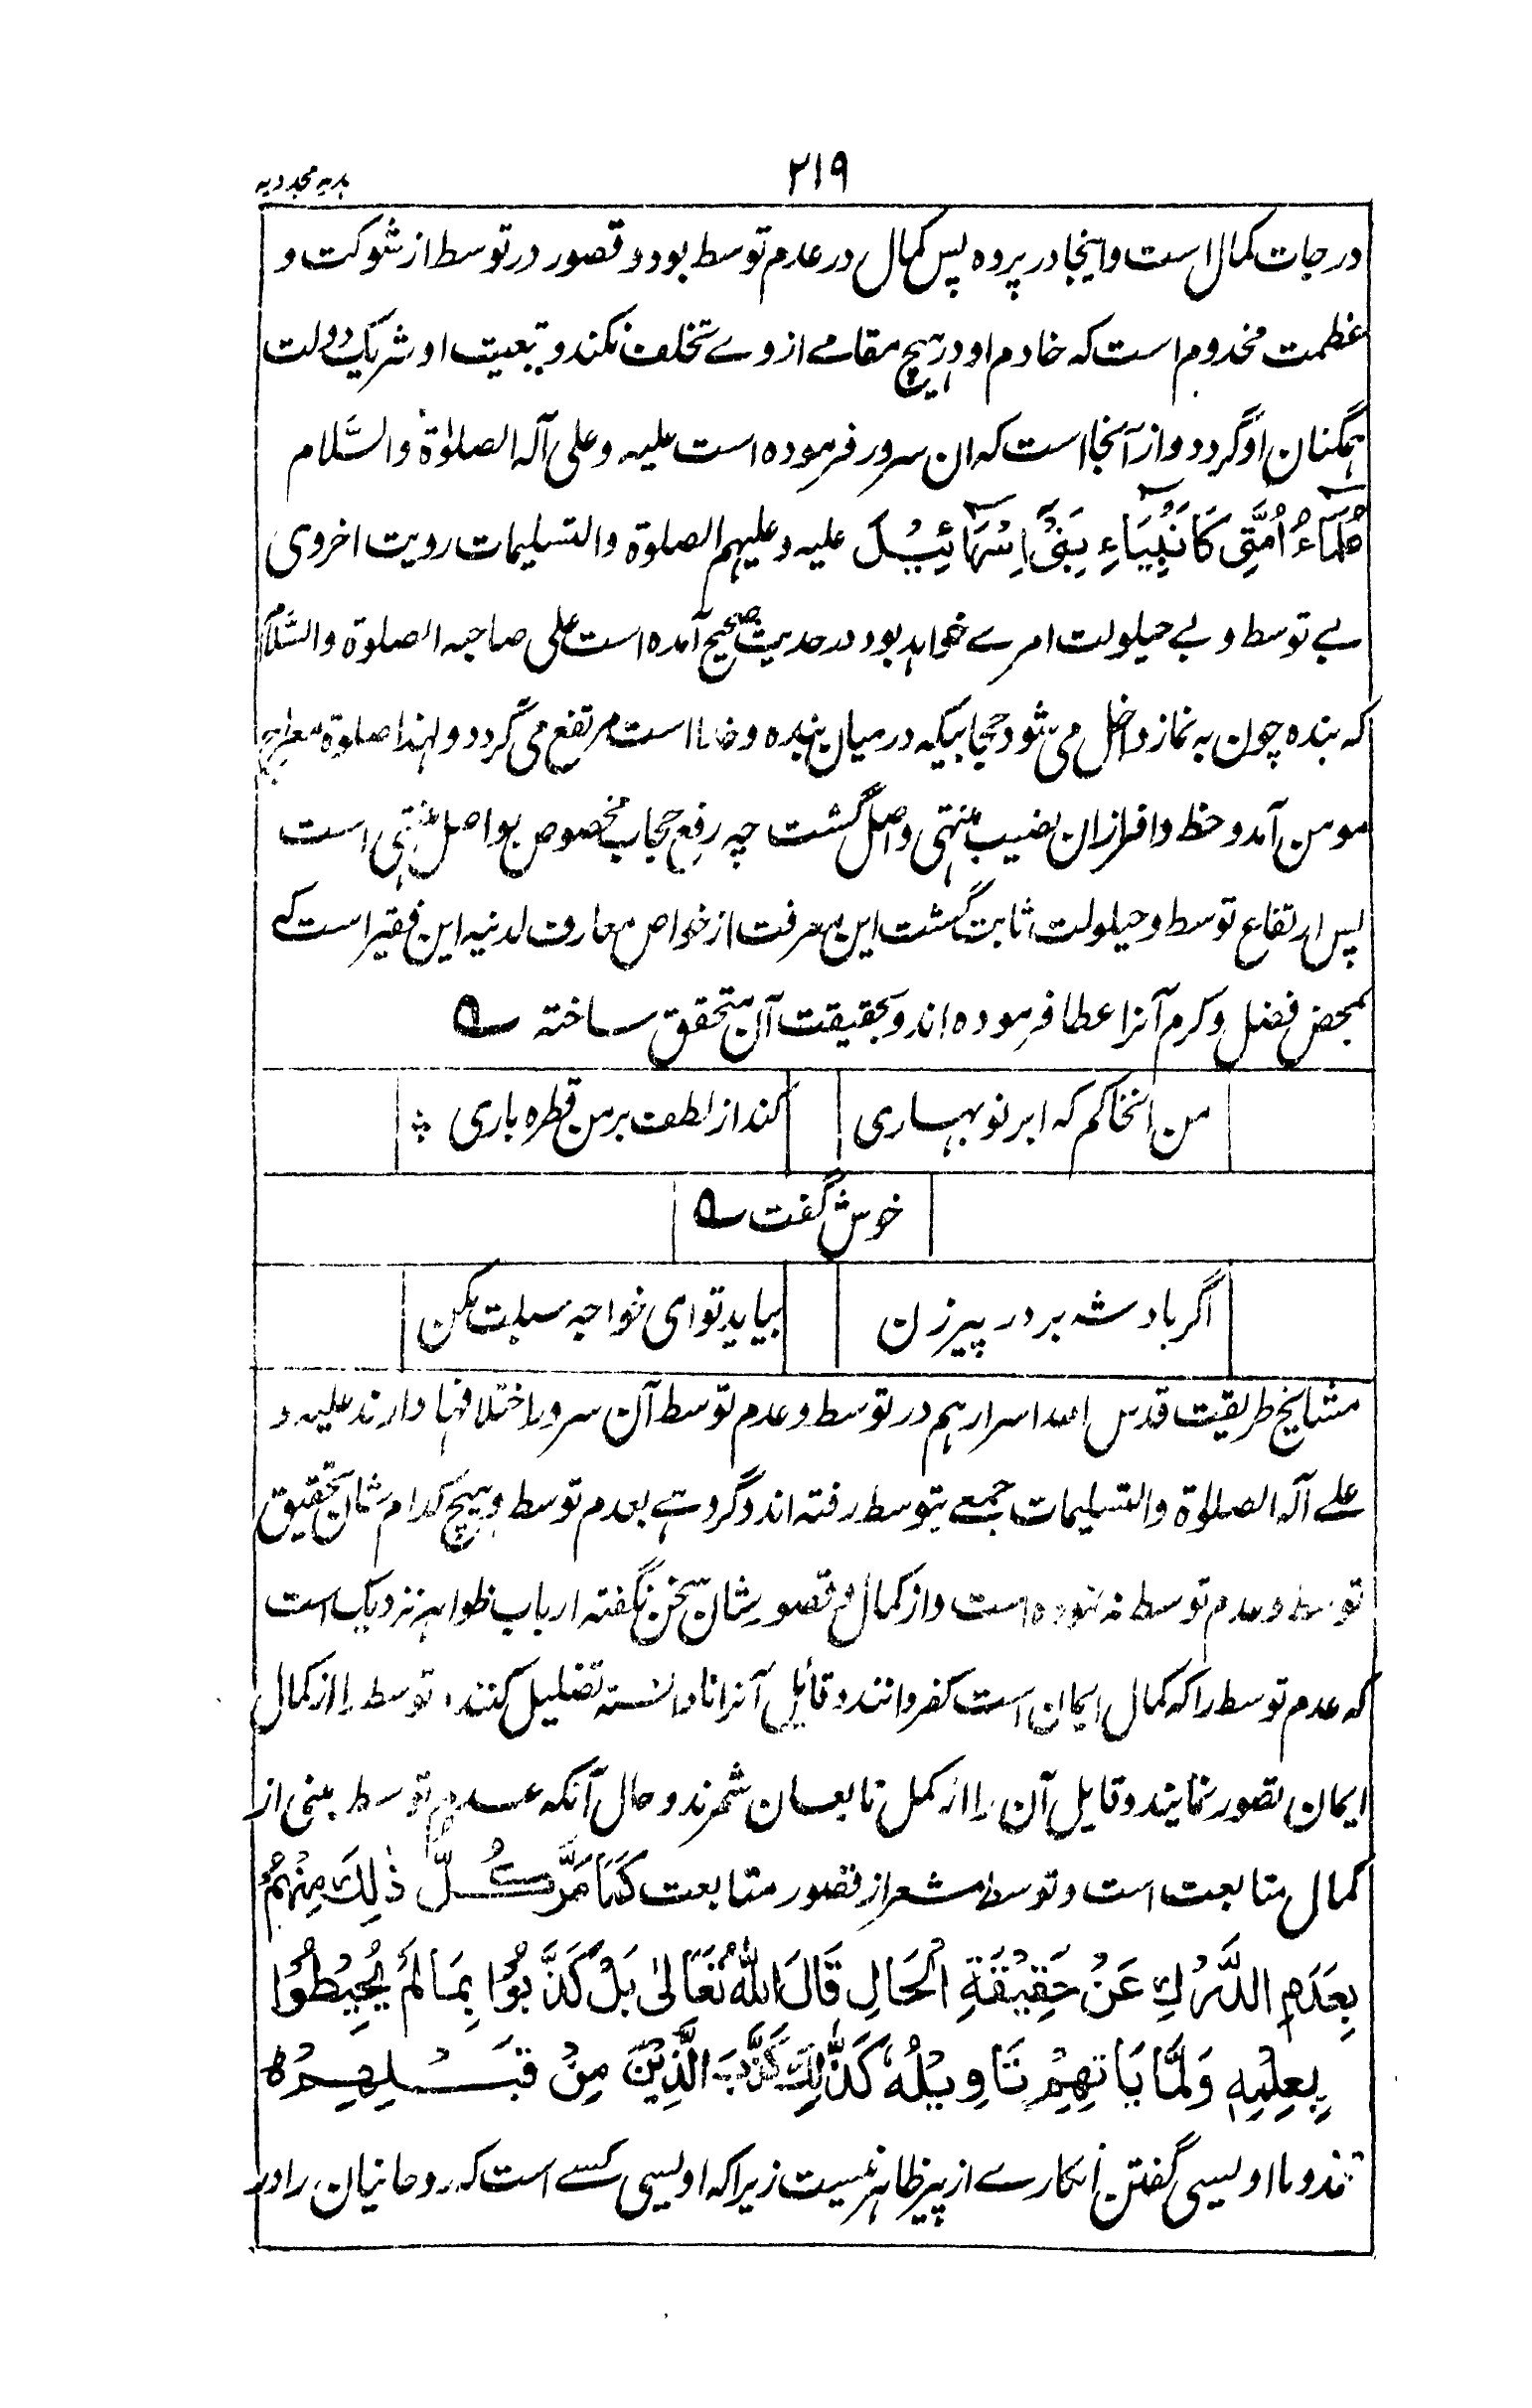 ۲۱۹
ہدیہ مجددیہ
درجات کمال است و اینجا در پرده پس کمال در عدم توسط بود و قصور در توسط از شوکت و
عظمت مخدوم است که خادم او در هیچ مقامے از وے تخلف نکند و بتبعیت او شریک دولت
همگنان او گردد و از آنجا است که ان سرور فرموده است علیه و علی آله الصلوٰة والسَّلام
عُلَمَاءُ اُمَّتِی کَاَنْبِیَاءِ بَنِیْ اِسْرَائِیْلَ علیه و علیهم الصلوة والتسلیمات رویت اخروی
بے توسط و بے حیلولت امرے خواهد بود در حدیث صحیح آمده است علی صاحبه الصلوة والسَّلام
که بنده چون به نماز داخل می شود حجابیکه در میان بنده و خدا است مرتفع می گردد و لهذا صلوة معراج
مومن آمد و حظ وافر ازان نصیب منتهی واصل گشت چه رفع حجاب مخصوص بواصل منتهی است
پس ارتفاع توسط و حیلولت ثابت گشت این معرفت از خواص معارف لدنیه این فقیر است که
بمحض فضل و کرم آنرا عطا فرموده اند و بحقیقت آن متحقق ساخته ؎
من انخاکم که ابر نو بهاری کند از لطف بر من قطره باری
خوش گفت ؎
اگر بادشه بر در پیر زن بیاید تو ای خواجه سبلت مکن
مشایخ طریقت قدس الله اسرارهم در توسط و عدم توسط آن سرور اختلافها دارند علیه و
علے آله الصلوٰة والتسلیمات جمعے بتوسط رفته اند و گروهے بعدم توسط و هیچ کدام شان تحقیق
توسط و عدم توسط نه نموده است و از کمال و قصور شان سخن نگفته ارباب ظواهر نزدیک است
که عدم توسط را که کمال ایمان است کفر دانند و قایل آنرا نادانسته تضلیل کنند و توسط را از کمال
ایمان تصور نمایند و قایل آن را از کمل تابعان شمرند و حال آنکه عدم توسط مبنی از
کمال متابعت است و توسط مشعر از قصور متابعت کَمَا مَرَّ کُلُّ ذٰلِکَ مِنْهُمْ
بِعَدَمِ الدَّرْكِ عَنْ حَقِیْقَةِ الْحَالِ قَالَ اللّٰهُ تَعَالیٰ بَلْ کَذَّبُوْا بِمَا لَمْ یُحِیْطُوْا
بِعِلْمِهٖ وَلَمَّا یَاْتِهِمْ تَاوِیْلُهٗ کَذٰلِكَ کَذَّبَ الَّذِیْنَ مِنْ قَبْلِهِمْ ه
مخدوما اویسی گفتن انکارے از پیر ظاهر نیست زیرا که اویسی کسے است که روحانیان را در